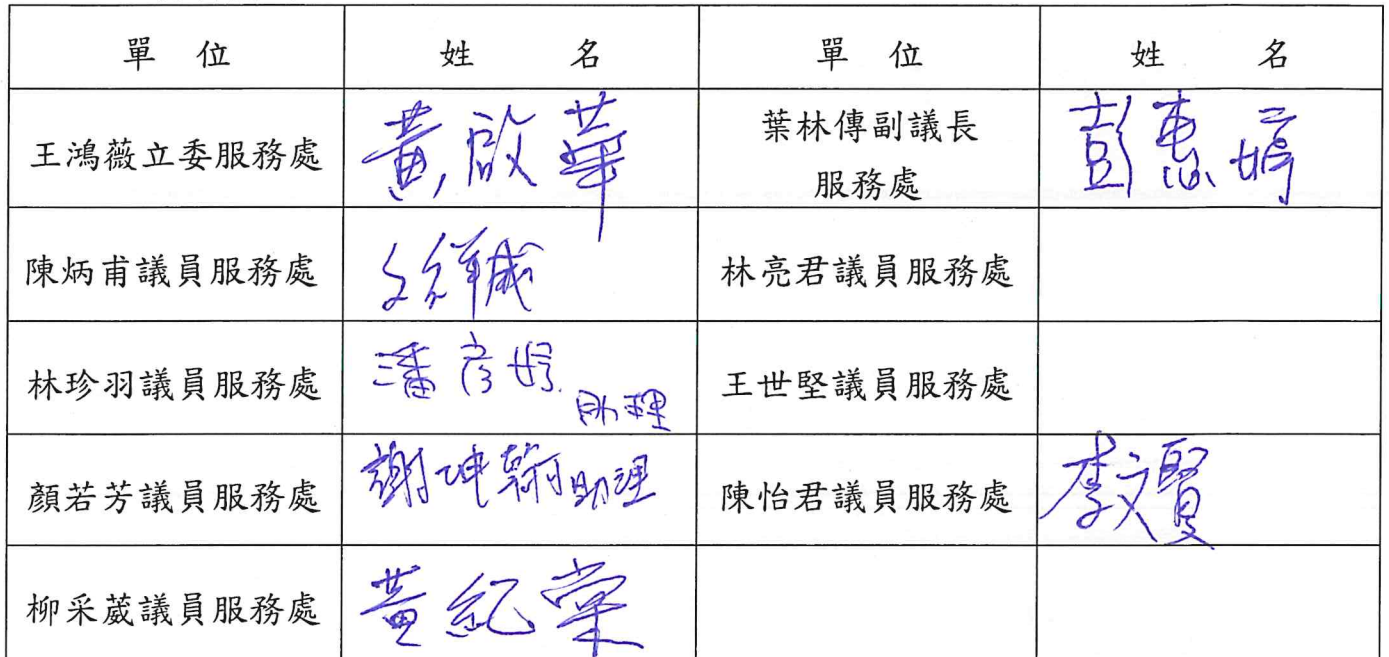 單 位 姓 名 單 位 姓 名
王鴻薇立委服務處 黃啟華 葉林傳副議長 服務處 彭惠婷
陳炳甫議員服務處 林亮君議員服務處
林珍羽議員服務處 潘彥妤 助理 王世堅議員服務處
顏若芳議員服務處 謝坤翰助理 陳怡君議員服務處 李文賢
柳采葳議員服務處 黃紀棠